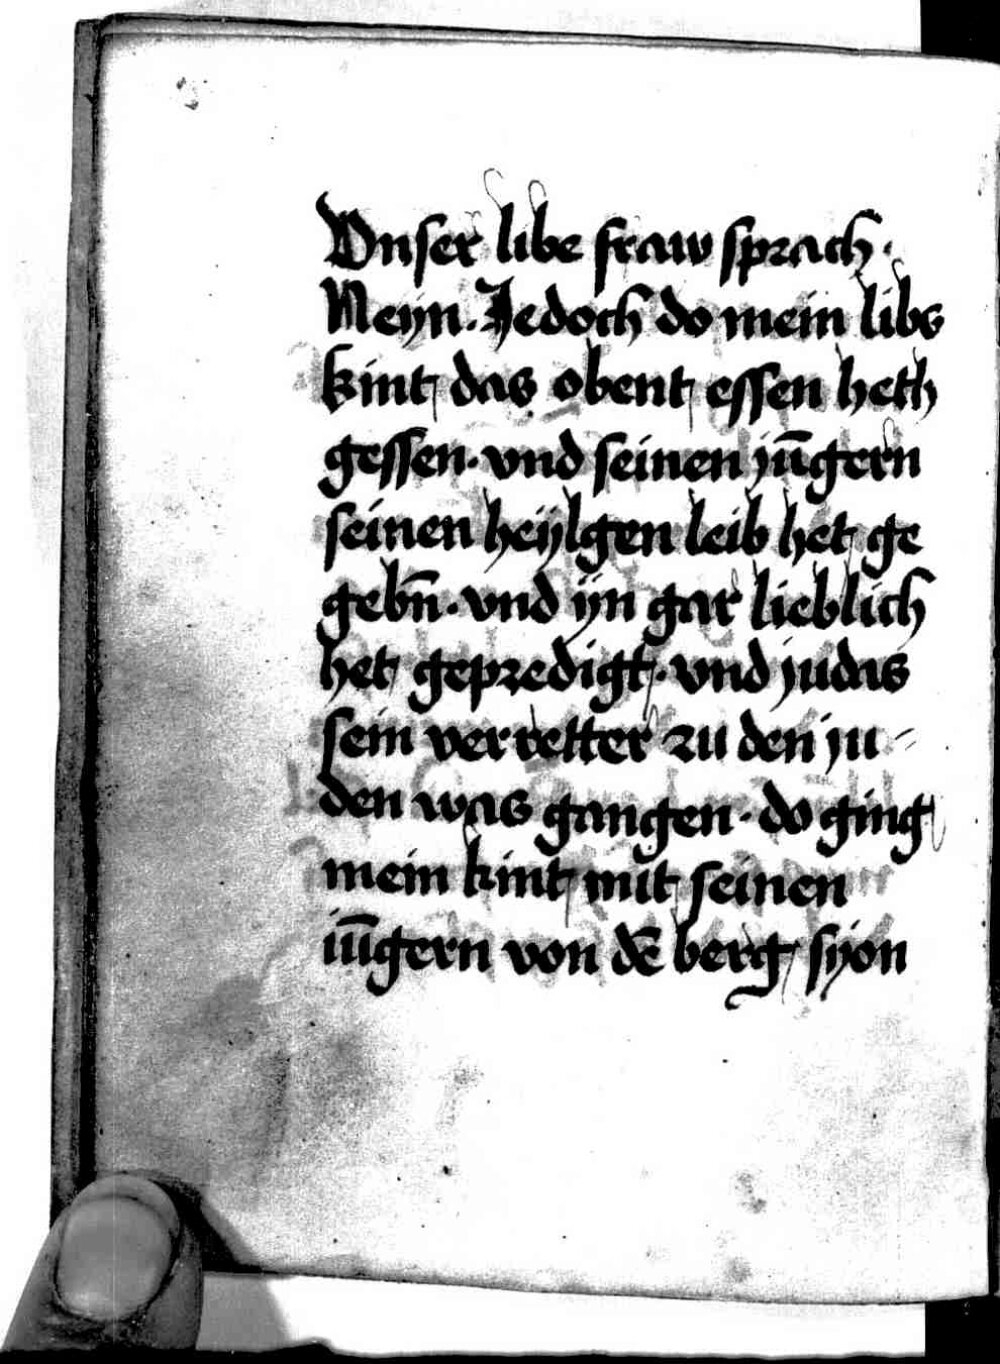 Vnser libe fraw sprach·
Neyn. Jedoch do mein libs
kint das obent essen heth
gessen. vnd seinen jūgern
seinen heÿlgen leib het ge
gebn̄. vnd ÿn gar lieblich
het gepredigt. vnd judas
sein verretter zu den ju-
den was gangen. do ging
mein kint mit seinen
iūgern von dē berg syon